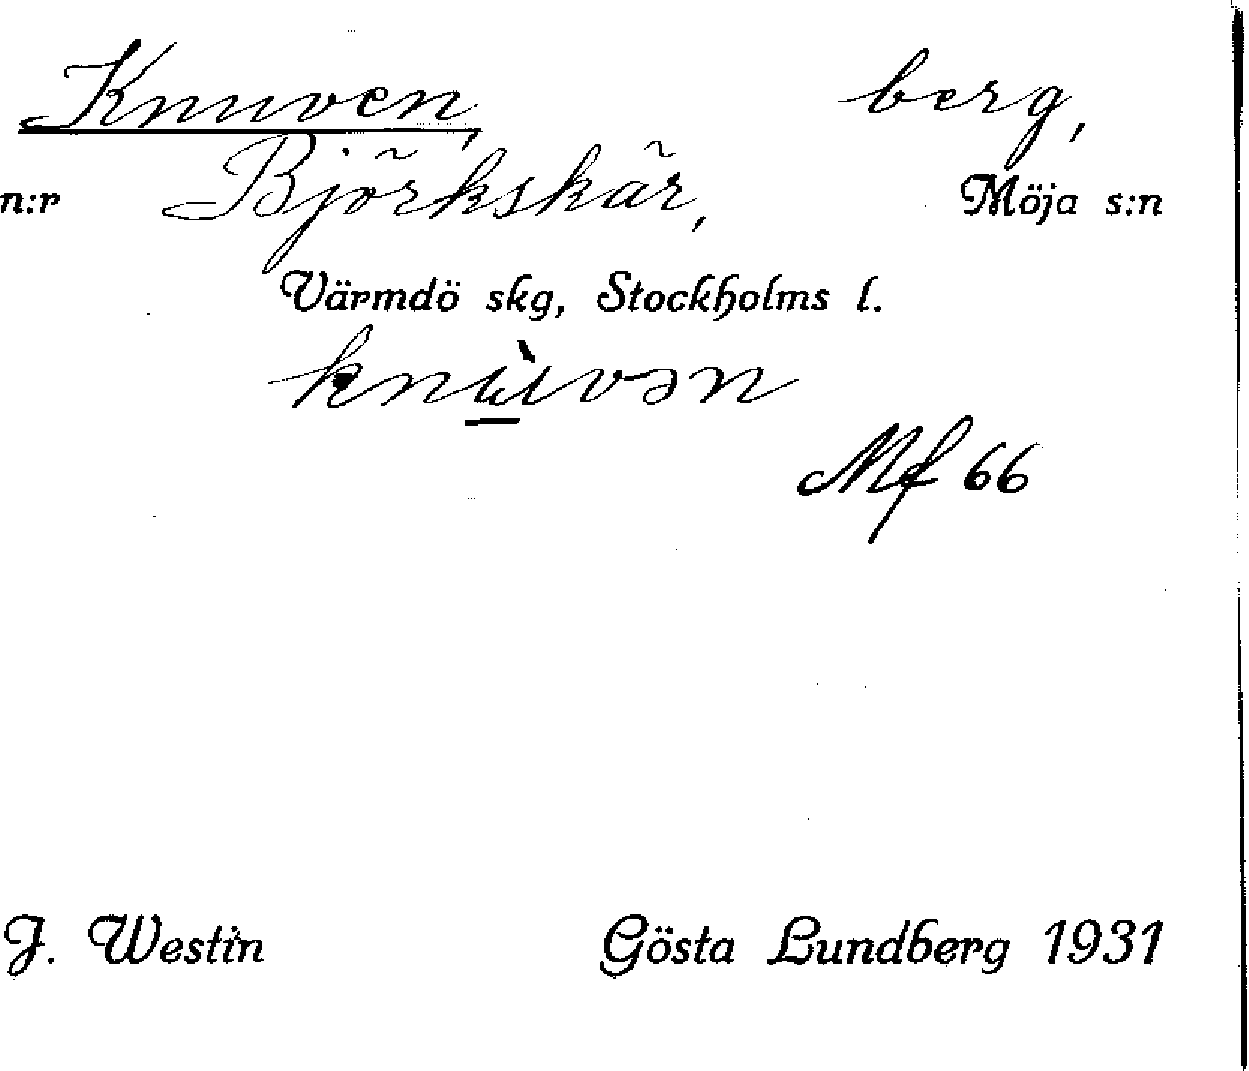 Knuven, berg,
n:r Björkskär, Möja s:n
Värmdö skg, Stockholms l.
knùvən
Mf 66
J. Westin Gösta Lundberg 1931